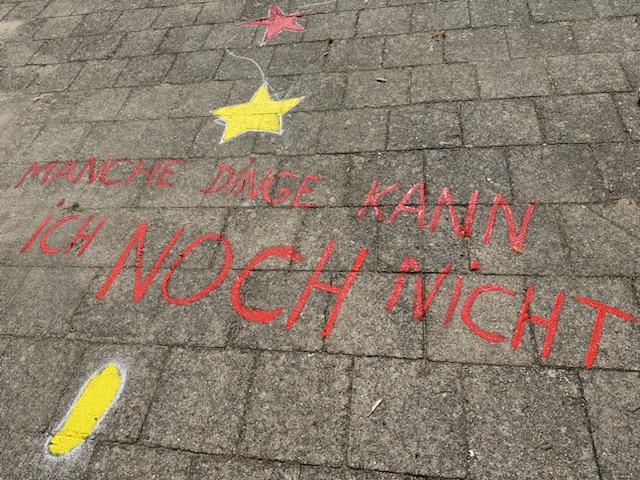 MANCHE DINGE KANN
ICH NOCH NICHT